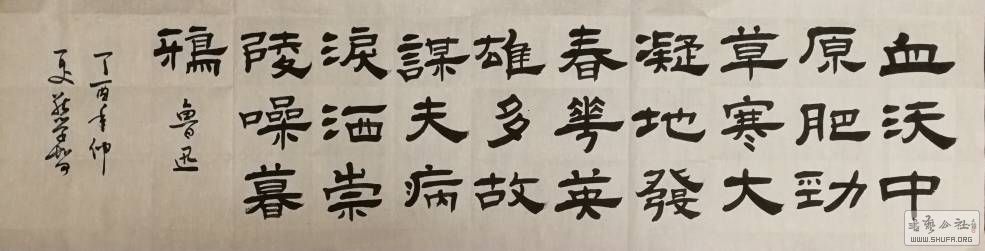 血沃中
原肥勁
草寒大
凝地發
春華英
雄多故
謀夫病
淚洒崇
陵噪暮
鴉 魯迅
丁酉年仲
夏
书艺公社
WWW.SHUFA.ORG